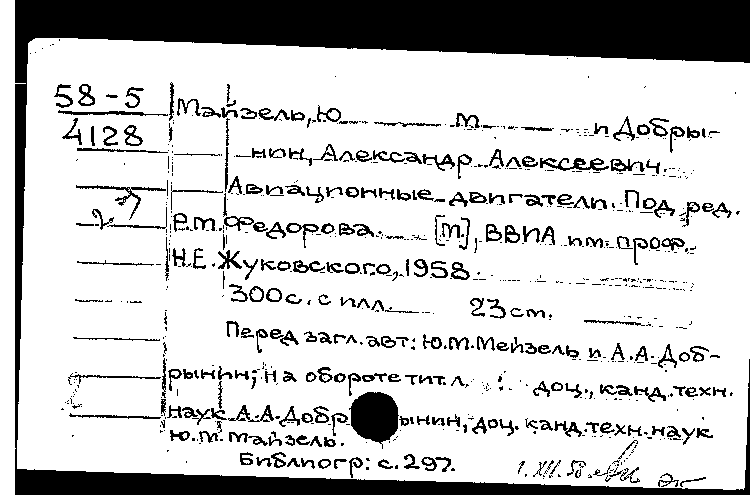 58-5
4128
Майзель, Ю М и Добры-
нин, Александр Алексеевич.
Авиационные двигатели. Под ред.
Р.М. Федорова. [М], ВВИА им. проф.
Н.Е. Жуковского, 1958.
300с. с илл. 23 cm.
Перед загл. авт: Ю.М. Мейзель и А.А. Доб-
рынин; На обороте тит. л. : доц., канд. техн.
наук А.А. Добрынин, доц. канд. техн. наук
Ю.М. Майзель.
Библиогр: с. 297.
1.XII.58.